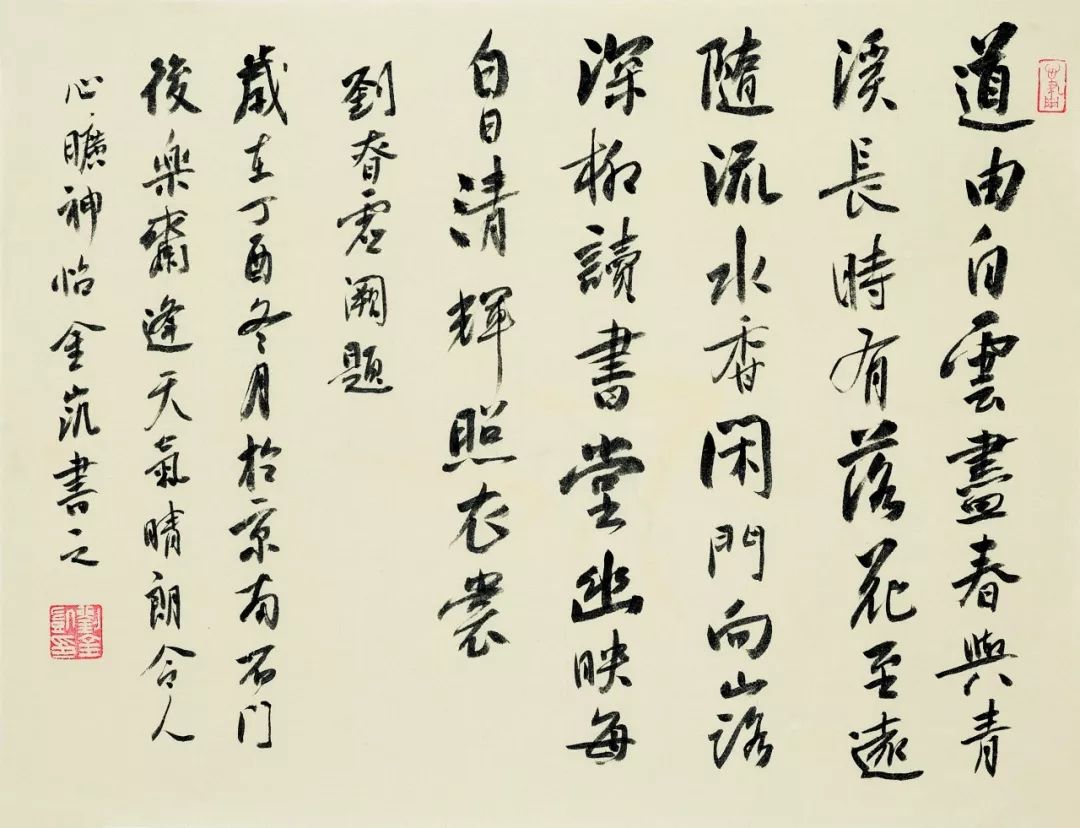 道由白雲盡春與青
溪長時有落花至遠
隨流水香閑門向山路
深柳讀書堂幽映每
白日清輝照衣裳
劉昚虛闕題
歲在丁酉冬月於京南石门
後樂齋逢天氣晴朗令人
心曠神怡金凯書之
劉金凱印